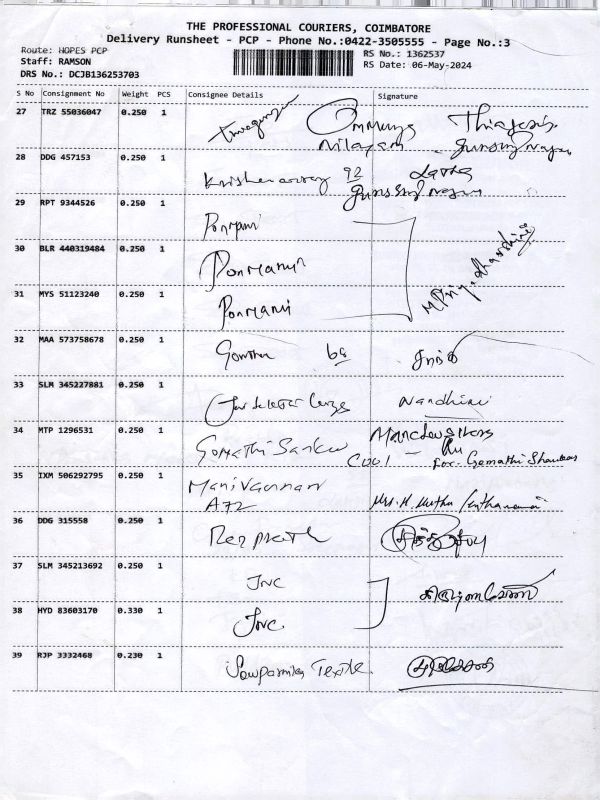 THE PROFESSIONAL COURIERS, COIMBATORE
Delivery Runsheet - PCP - Phone No.:0422-3505555 - Page No.:3
Route: HOPES PCP
RS No.: 1362537
Staff: RAMSON
RS Date: 06-May-2024
DRS No.: DCJB136253703
S No Consignment No Weight PCS Consignee Details Signature
27 TRZ 55036047 0.250 1
Nilayam
28 DDG 457153 0.250 1 92 Latha
29 RPT 9344526 0.250 1 Ponmani
30 BLR 440319484 0.250 1 Ponmani
M Priyadharshini
31 MYS 51123240 0.250 1 Ponmani
32 MAA 573758678 0.250 1
33 SLM 345227881 0.250 1 Nandhini
34 MTP 1296531 0.250 1 Gomathi Sankar
C001 - For- Gomathi Shankar
35 IXM 506292795 0.250 1 Manivannan
A72
36 DDG 315558 0.250 1
37 SLM 345213692 0.250 1 JNC
38 HYD 83603170 0.330 1 JNC
39 RJP 3332468 0.230 1 Sowparnika Textile